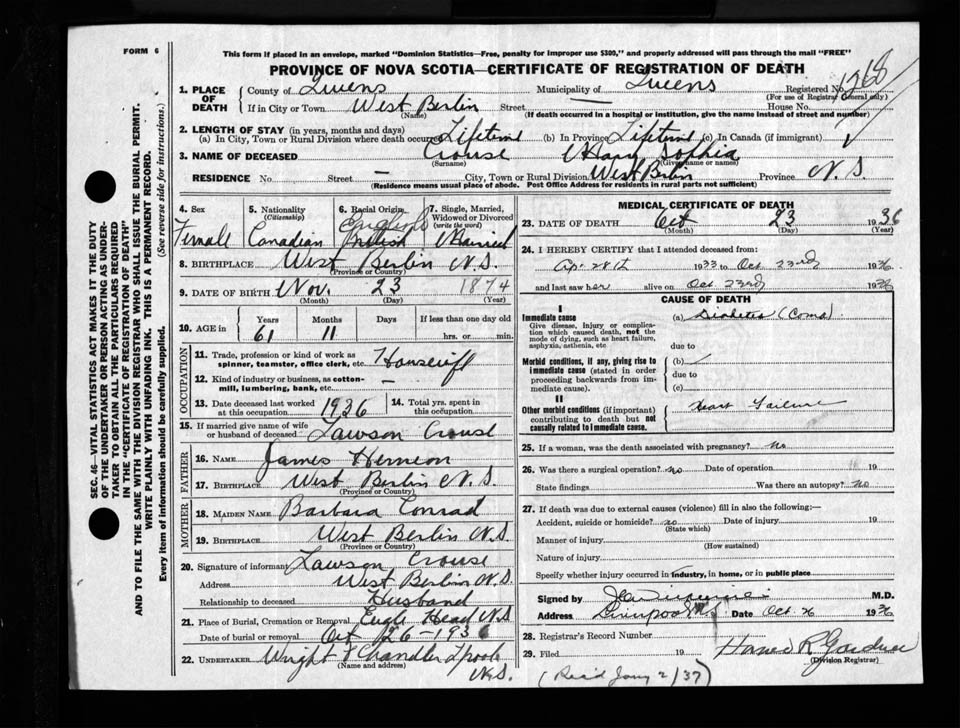 FORM 6
This form if placed in an envelope, marked "Dominion Statistics—Free, penalty for improper use $300," and properly addressed will pass through the mail "FREE"
PROVINCE OF NOVA SCOTIA—CERTIFICATE OF REGISTRATION OF DEATH
SEC. 46—VITAL STATISTICS ACT MAKES IT THE DUTY
OF THE UNDERTAKER OR PERSON ACTING AS UNDER-
TAKER TO OBTAIN ALL THE PARTICULARS REQUIRED
IN THE "CERTIFICATE OF REGISTRATION OF DEATH"
AND TO FILE THE SAME WITH THE DIVISION REGISTRAR WHO SHALL ISSUE THE BURIAL PERMIT.
WRITE PLAINLY WITH UNFADING INK. THIS IS A PERMANENT RECORD.
Every item of information should be carefully supplied. (See reverse side for instructions.)
1. PLACE OF DEATH
County of Queens Municipality of Queens Registered No. 1268
(For use of Registrar General only)
If in City or Town West Berlin Street House No.
(Name) (If death occurred in a hospital or institution, give the name instead of street and number)
2. LENGTH OF STAY (in years, months and days)
(a) In City, Town or Rural Division where death occurred Lifetime (b) In Province Lifetime (c) In Canada (if immigrant)
3. NAME OF DECEASED Crouse Mary Sophia
(Surname) (Given name or names)
RESIDENCE No. Street — City, Town or Rural Division West Berlin Province N.S.
(Residence means usual place of abode. Post Office Address for residents in rural parts not sufficient)
4. Sex Female
5. Nationality (Citizenship) Canadian
6. Racial Origin English British
7. Single, Married, Widowed or Divorced (write the word) Married
8. BIRTHPLACE West Berlin N.S.
(Province or Country)
9. DATE OF BIRTH Nov. 23 1874
(Month) (Day) (Year)
10. AGE in Years 61 Months 11 Days If less than one day old hrs. or min.
OCCUPATION
11. Trade, profession or kind of work as spinner, teamster, office clerk, etc. Housewife
12. Kind of industry or business, as cotton-mill, lumbering, bank, etc. —
13. Date deceased last worked at this occupation 1936
14. Total yrs. spent in this occupation
15. If married give name of wife or husband of deceased Lawson Crouse
FATHER
16. NAME James
17. BIRTHPLACE West Berlin N.S.
(Province or Country)
MOTHER
18. MAIDEN NAME Barbara Conrad
19. BIRTHPLACE West Berlin N.S.
(Province or Country)
20. Signature of informant Lawson Crouse
Address West Berlin N.S.
Relationship to deceased Husband
21. Place of Burial, Cremation or Removal Eagle Head N.S.
Date of burial or removal Oct 26 - 1936
22. UNDERTAKER Wright & Chandler Lpool
(Name and address) N.S.
MEDICAL CERTIFICATE OF DEATH
23. DATE OF DEATH Oct 23 1936
(Month) (Day) (Year)
24. I HEREBY CERTIFY that I attended deceased from:
Ap. 28th 1933 to Oct 23rd 1936
and last saw her alive on Oct 23rd 1936
CAUSE OF DEATH
I
Immediate cause
Give disease, injury or complica-
tion which caused death, not the
mode of dying, such as heart failure,
asphyxia, asthenia, etc
(a) Diabetes (Coma)
due to
Morbid conditions, if any, giving rise to
immediate cause (stated in order
proceeding backwards from im-
mediate cause).
(b)
due to
(c)
II
Other morbid conditions (if important)
contributing to death but not
causally related to immediate cause.
Heart Failure
25. If a woman, was the death associated with pregnancy? no
26. Was there a surgical operation? no Date of operation 19
State findings Was there an autopsy? no
27. If death was due to external causes (violence) fill in also the following:—
Accident, suicide or homicide? no Date of injury 19
(State which)
Manner of injury
(How sustained)
Nature of injury
Specify whether injury occurred in industry, in home, or in public place
Signed by M.D.
Address Liverpool N.S. Date Oct 26 1936
28. Registrar's Record Number
29. Filed 19 R Gardner
(Division Registrar)
(Rec'd Jany 2/37)